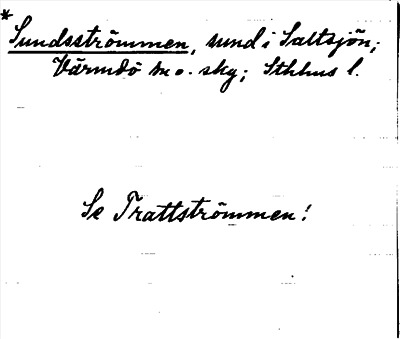 *Sundsströmmen, sund i Saltsjön;
Värmdö sn o. sky; Sthlms l.
Se Trattströmmen!